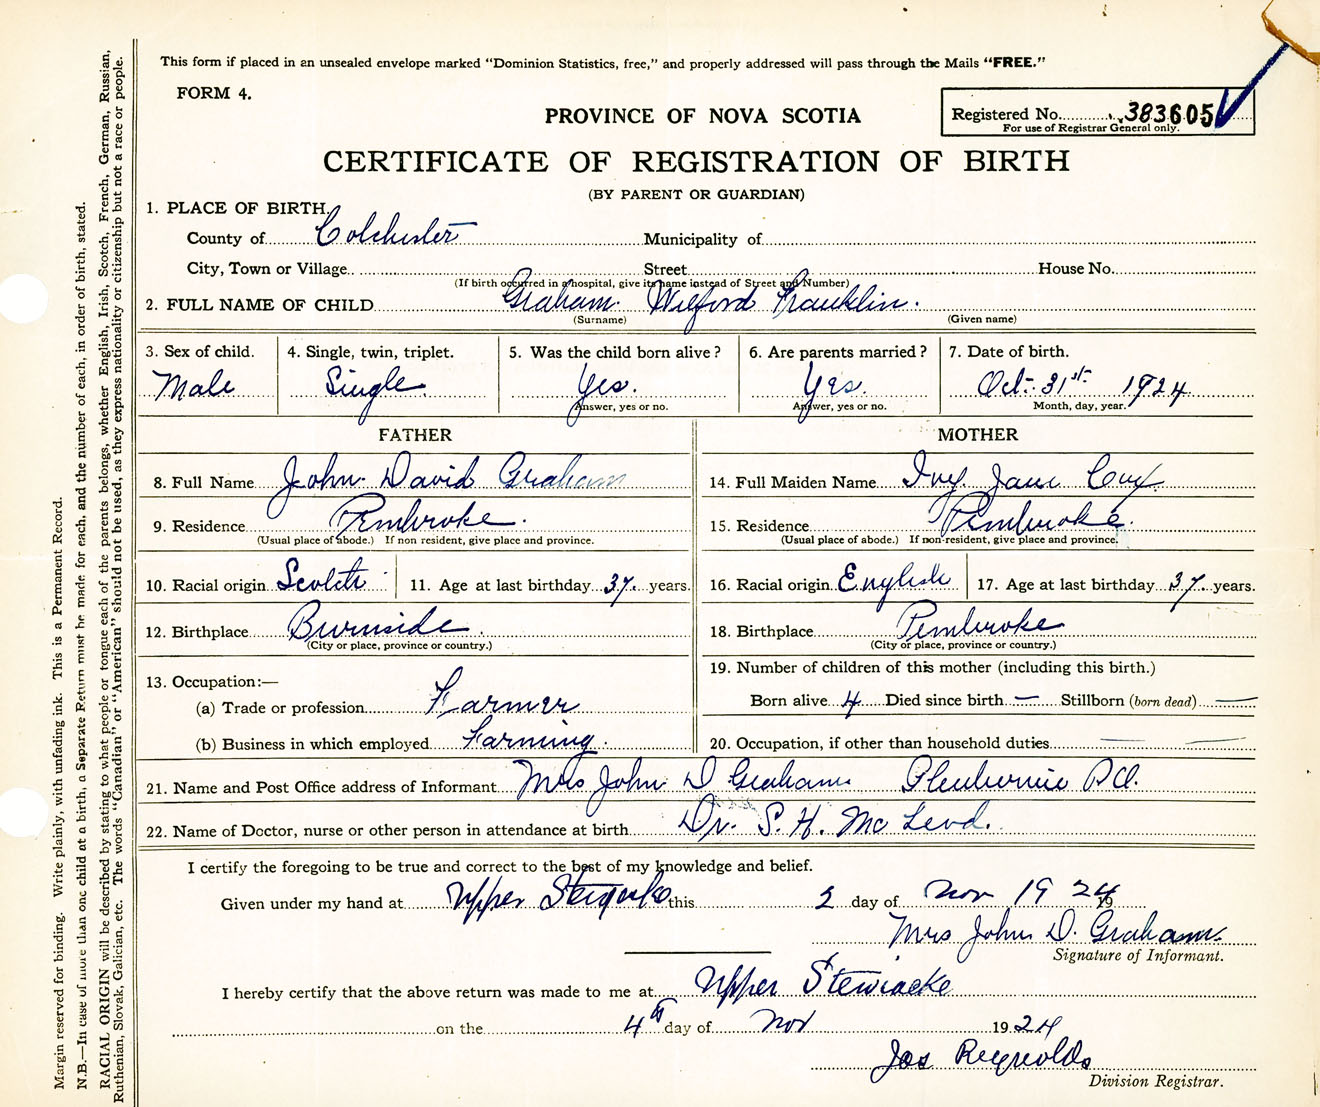 This form if placed in an unsealed envelope marked "Dominion Statistics, free," and properly addressed will pass through the Mails "FREE."
FORM 4.
PROVINCE OF NOVA SCOTIA
Registered No. 383605
For use of Registrar General only.
CERTIFICATE OF REGISTRATION OF BIRTH
(BY PARENT OR GUARDIAN)
1. PLACE OF BIRTH.
County of Colchester Municipality of
City, Town or Village. Street House No.
(If birth occurred in a hospital, give its name instead of Street and Number)
2. FULL NAME OF CHILD Graham Wilford Franklin.
(Surname) (Given name)
3. Sex of child. 4. Single, twin, triplet. 5. Was the child born alive? 6. Are parents married? 7. Date of birth.
Male Single Yes. Yes. Oct. 31st 1924
Answer, yes or no. Answer, yes or no. Month, day, year.
FATHER MOTHER
8. Full Name John David Graham 14. Full Maiden Name Ivy Jane Cox
9. Residence Pembroke. 15. Residence Pembroke.
(Usual place of abode.) If non resident, give place and province. (Usual place of abode.) If non-resident, give place and province.
10. Racial origin Scotch 11. Age at last birthday 37. years. 16. Racial origin English 17. Age at last birthday 37. years.
12. Birthplace Burnside. 18. Birthplace Pembroke
(City or place, province or country.) (City or place, province or country.)
19. Number of children of this mother (including this birth.)
13. Occupation:—
(a) Trade or profession Farmer Born alive 4 Died since birth — Stillborn (born dead) —
(b) Business in which employed Farming. 20. Occupation, if other than household duties — —
21. Name and Post Office address of Informant Mrs John D Graham Glenbervie P.O.
22. Name of Doctor, nurse or other person in attendance at birth Dr. S. H. McLeod.
I certify the foregoing to be true and correct to the best of my knowledge and belief.
Given under my hand at Upper Stewiacke this 2 day of Nov 1924 19
Mrs John D. Graham.
Signature of Informant.
I hereby certify that the above return was made to me at Upper Stewiacke
on the 4th day of Nov 1924
Jas Reynolds
Division Registrar.
Margin reserved for binding. Write plainly, with unfading ink. This is a Permanent Record.
N.B.—In case of more than one child at a birth, a Separate Return must be made for each, and the number of each, in order of birth, stated.
RACIAL ORIGIN will be described by stating to what people or tongue each of the parents belongs, whether English, Irish, Scotch, French, German, Russian,
Ruthenian, Slovak, Galician, etc. The words "Canadian" or "American" should not be used, as they express nationality or citizenship but not a race or people.